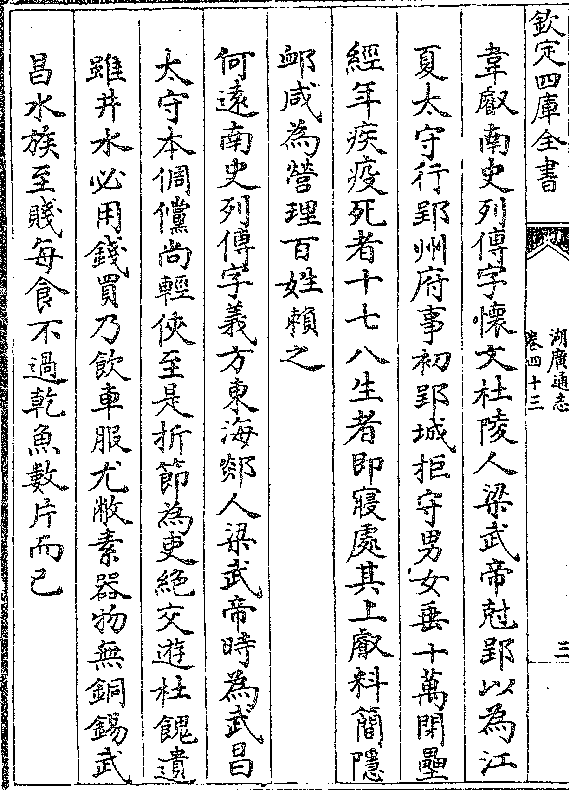 欽定四庫全書
湖廣通志
卷四十三
三
韋叡南史列傳字懷文杜陵人梁武帝尅郢以為江
夏太守行郢州府事初郢城拒守男女垂十萬閉壘
經年疾疫死者十七八生者即寢處其上叡料簡隱
卹咸為營理百姓賴之
何遠南史列傳字義方東海郯人梁武帝時為武昌
太守本倜儻尚輕俠至是折節為吏絶交遊杜餽遺
雖井水必用錢買乃飲車服尤敝素器物無銅錫武
昌水族至賤每食不過乾魚數片而已